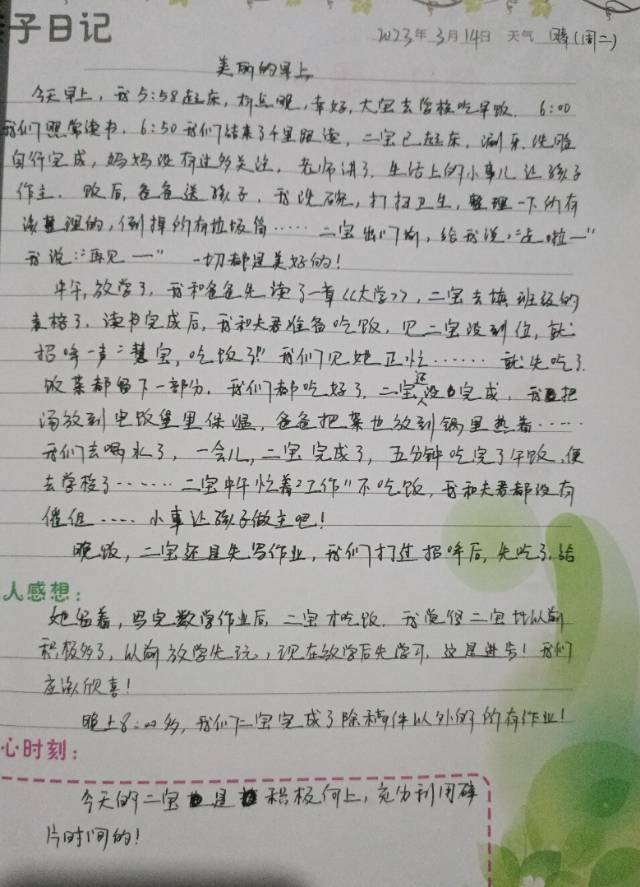 子日记
2023年3月14日 天气 晴(周二)
美丽的早上
今天早上，我5:58起床，有点晚，幸好，大宝去学校吃早饭。6:00
我们照常读书，6:50我们结束了千里跟读，二宝已起床，涮牙，洗脸
自行完成，妈妈没有过多关注，老师讲了，生活上的小事儿让孩子
作主。饭后，爸爸送孩子，我洗碗，打扫卫生，整理一下所有
该整理的，倒掉所有垃圾筒……二宝出门前，给我说："走啦一"
我说："再见一" 一切都是美好的！
中午，放学了，我和爸爸先读了一章《大学》，二宝去填班级的
表格了，读书完成后，我和夫君准备吃饭，见二宝没到位，就
招呼一声："慧宝，吃饭了！"我们见她正忙……就先吃了
饭菜都留下一部分，我们都吃好了，二宝还没完成，我把
汤放到电饭煲里保温，爸爸把菜也放到锅里热着……
我们去喝水了，一会儿，二宝完成了，五分钟吃完了午饭，便
去学校了……二宝中午忙着"工作"不吃饭，我和夫君都没有
催促……小事让孩子做主吧！
晚饭，二宝还是先写作业，我们打过招呼后，先吃了，给
人感想：
她留着，写完数学作业后，二宝才吃饭，我觉得二宝比以前
积极多了，以前放学先玩，现在放学后先学习，这是进步！我们
应该欣喜！
晚上8:00多，我们二宝完成了除稿件以外的所有作业！
心时刻：
今天的二宝是积极向上，充分利用碎
片时间的！